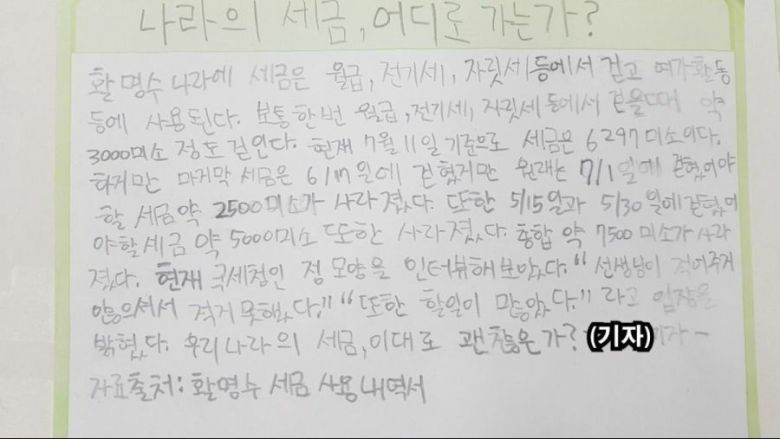 나라의 세금, 어디로 가는가?
활명수 나라에 세금은 월급, 전기세, 자릿세 등에서 걷고 여가활동
등에 사용된다. 보통 한번 월급, 전기세, 자릿세 등에서 걷을때 약
3000미소 정도 걷힌다. 현재 7월 11일 기준으로 세금은 6297미소이다.
하지만 마지막 세금은 6/17일에 걷혔지만 원래는 7/1일에 걷혔어야
할 세금 약 2500미소가 사라졌다. 또한 5/15일과 5/30일에 걷혔어
야할 세금 약 5000미소 또한 사라졌다. 총합 약 7500미소가 사라
졌다. 현재 국세청인 정 모양을 인터뷰해보았다. "선생님이 적어주지
않으셔서 적지 못했다." "또한 할일이 많았다." 라고 입장을
밝혔다. 우리나라의 세금, 이대로 괜찮은가? (기자) 기자-
자료출처: 활명수 세금 사용내역서